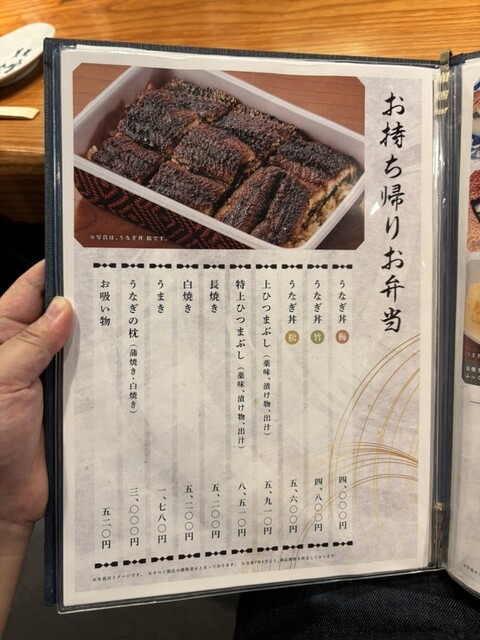 お持ち帰りお弁当
※写真は、うなぎ丼 松です。
うなぎ丼 梅 四、〇〇〇円
うなぎ丼 竹 四、八〇〇円
うなぎ丼 松 五、六〇〇円
上ひつまぶし（薬味、漬け物、出汁） 五、九一〇円
特上ひつまぶし（薬味、漬け物、出汁） 八、五一〇円
長焼き 五、二〇〇円
白焼き 五、二〇〇円
うまき 一、七八〇円
うなぎの枕（蒲焼き・白焼き） 三、〇〇〇円
お吸い物 五二〇円
※写真はイメージです。